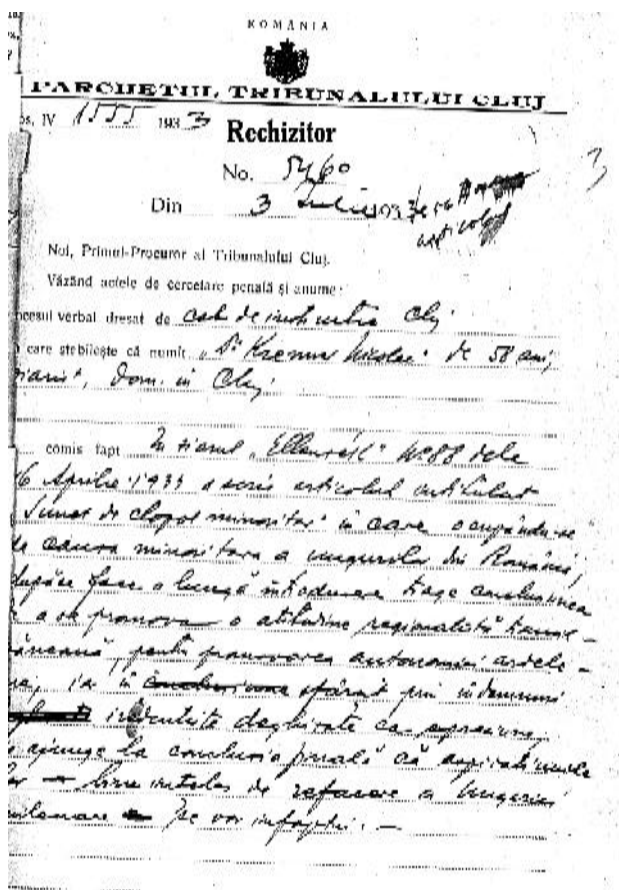 ROMÂNIA
PARCHETUL TRIBUNALULUI CLUJ
os. IV 1555 1933
Rechizitor
No. 5460
Din 3 Iulie 1933
articolul
Noi, Primul-Procuror al Tribunalului Cluj.
Văzând actele de cercetare penală și anume:
ocesul verbal dresat de cab de instrucție Cluj
care stebilește că numit „Dr Krenner Nicolae" de 58 ani,
ziarist, dom. in Cluj
comis fapt În ziarul „Ellenzék" No 88 dela
16 Aprilie 1933 a scris articolul intitulat
Sunet de clopot minoritar" în care ocupându-se
de cauza minoritara a ungurilor din România,
după ce face o lungă introducere trage concluziunea
a se promova o atitudine regionalistă transil-
văneană, pentru promovarea autonomiei ardele-
ne, în sfârșit prin îndemnuri
ajunge la concluzia finală că aspirațiunile
bine înteles de refacere a Ungariei
milenare se vor înfăptui. —